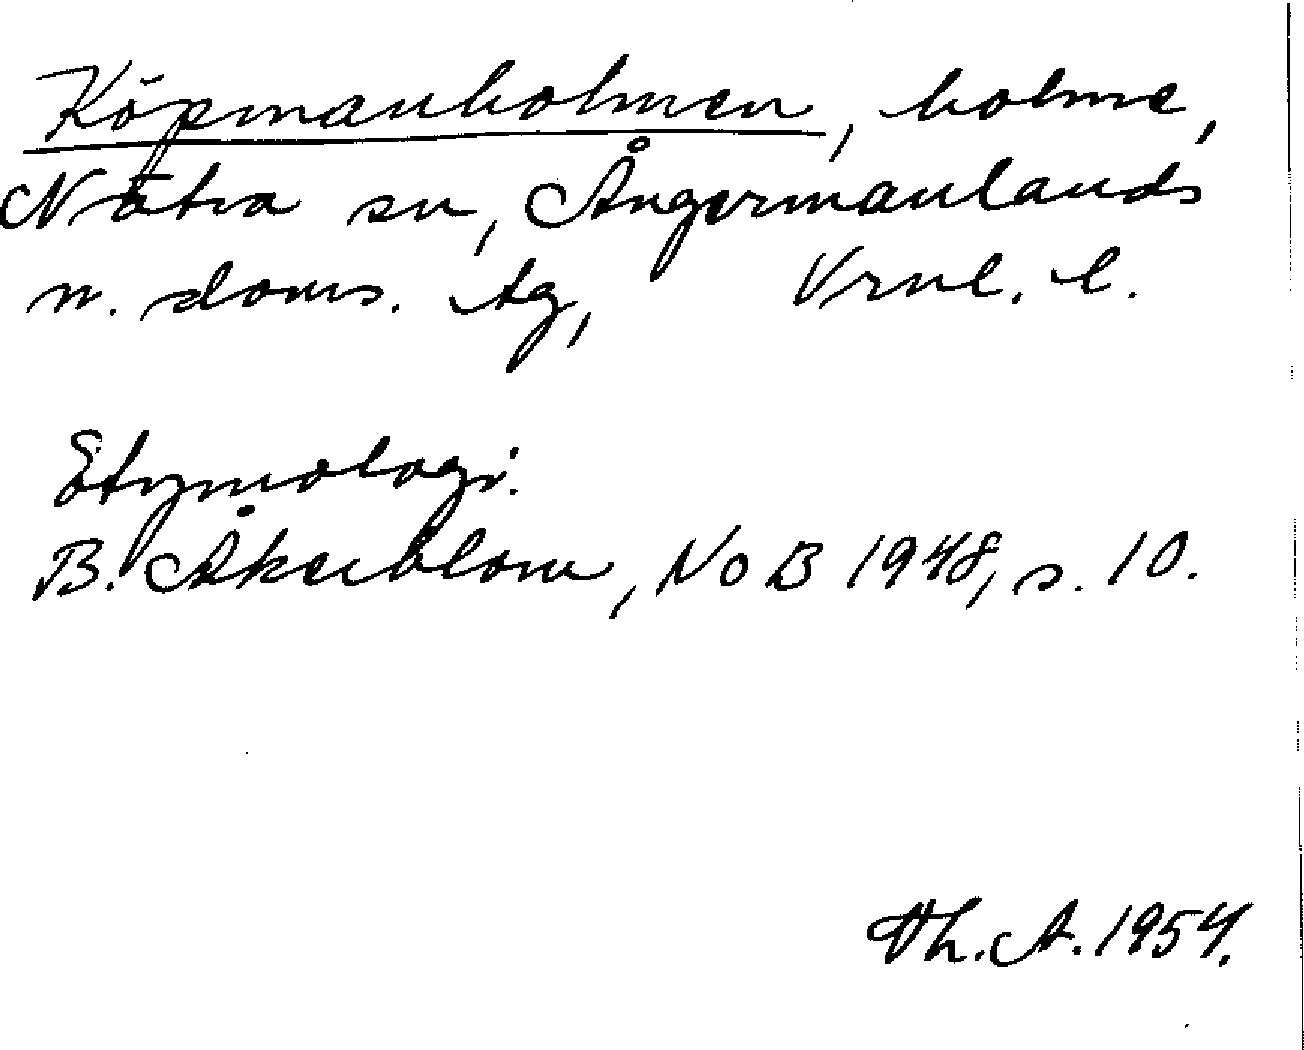 Köpmanholmen, holme,
Nätra sn, Ångermanlands
n. doms. tg, Vrnl. l.
Etymologi.
B. Åkerblom, NoB 1948, s. 10.
Th. A. 1954.